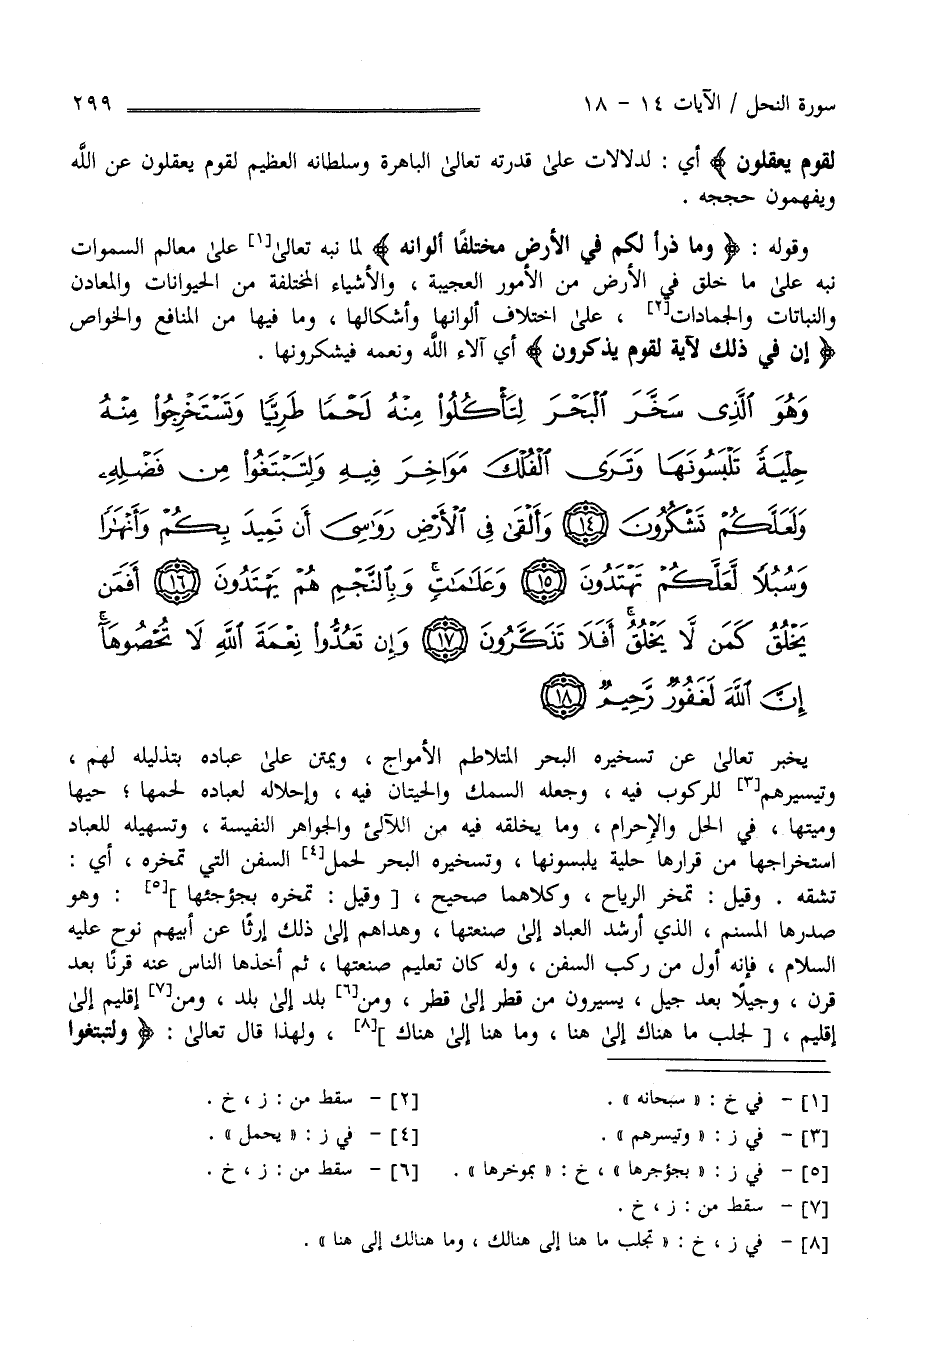 سورة النحل / الآيات ١٤ - ١٨ ٢٩٩
لقوم يعقلون ﴾ أي : لدلالات علىٰ قدرته تعالىٰ الباهرة وسلطانه العظيم لقوم يعقلون عن اللَّه
ويفهمون حججه .
وقوله : ﴿ وما ذرأ لكم في الأرض مختلفًا ألوانه ﴾ لما نبه تعالىٰ[١] علىٰ معالم السموات
نبه علىٰ ما خلق في الأرض من الأمور العجيبة ، والأشياء المختلفة من الحيوانات والمعادن
والنباتات والجمادات[٢] ، علىٰ اختلاف ألوانها وأشكالها ، وما فيها من المنافع والخواص
﴿ إن في ذلك لآية لقوم يذكرون ﴾ أي آلاء اللَّه ونعمه فيشكرونها .
وَهُوَ ٱلَّذِى سَخَّرَ ٱلْبَحْرَ لِتَأْكُلُوا۟ مِنْهُ لَحْمًا طَرِيًّا وَتَسْتَخْرِجُوا۟ مِنْهُ
حِلْيَةً تَلْبَسُونَهَا وَتَرَى ٱلْفُلْكَ مَوَاخِرَ فِيهِ وَلِتَبْتَغُوا۟ مِن فَضْلِهِۦ
وَلَعَلَّكُمْ تَشْكُرُونَ ١٤ وَأَلْقَىٰ فِى ٱلْأَرْضِ رَوَٰسِىَ أَن تَمِيدَ بِكُمْ وَأَنْهَٰرًا
وَسُبُلًا لَّعَلَّكُمْ تَهْتَدُونَ ١٥ وَعَلَٰمَٰتٍۚ وَبِٱلنَّجْمِ هُمْ يَهْتَدُونَ ١٦ أَفَمَن
يَخْلُقُ كَمَن لَّا يَخْلُقُۚ أَفَلَا تَذَكَّرُونَ ١٧ وَإِن تَعُدُّوا۟ نِعْمَةَ ٱللَّهِ لَا تُحْصُوهَآۚ
إِنَّ ٱللَّهَ لَغَفُورٌ رَّحِيمٌ ١٨
يخبر تعالىٰ عن تسخيره البحر المتلاطم الأمواج ، ويمتن علىٰ عباده بتذليله لهم ،
وتيسيرهم[٣] للركوب فيه ، وجعله السمك والحيتان فيه ، وإحلاله لعباده لحمها ؛ حيها
وميتها ، في الحل والإحرام ، وما يخلقه فيه من اللآلئ والجواهر النفيسة ، وتسهيله للعباد
استخراجها من قرارها حلية يلبسونها ، وتسخيره البحر لحمل[٤] السفن التي تمخره ، أي :
تشقه . وقيل : تمخر الرياح ، وكلاهما صحيح ، [ وقيل : تمخره بجؤجئها ][٥] : وهو
صدرها المسنم ، الذي أرشد العباد إلىٰ صنعتها ، وهداهم إلىٰ ذلك إرثًا عن أبيهم نوح عليه
السلام ، فإنه أول من ركب السفن ، وله كان تعليم صنعتها ، ثم أخذها الناس عنه قرنًا بعد
قرن ، وجيلًا بعد جيل ، يسيرون من قطر إلىٰ قطر ، ومن[٦] بلد إلىٰ بلد ، ومن[٧] إقليم إلىٰ
إقليم ، [ لجلب ما هناك إلىٰ هنا ، وما هنا إلىٰ هناك ][٨] ، ولهذا قال تعالىٰ : ﴿ ولتبتغوا
[١] - في خ : « سبحانه » . [٢] - سقط من : ز ، خ .
[٣] - في ز : « وتيسرهم » . [٤] - في ز : « يحمل » .
[٥] - في ز : « بجؤجرها » ، خ : « بموخرها » . [٦] - سقط من : ز ، خ .
[٧] - سقط من : ز ، خ .
[٨] - في ز ، خ : « تجلب ما هنا إلى هنالك ، وما هنالك إلى هنا » .